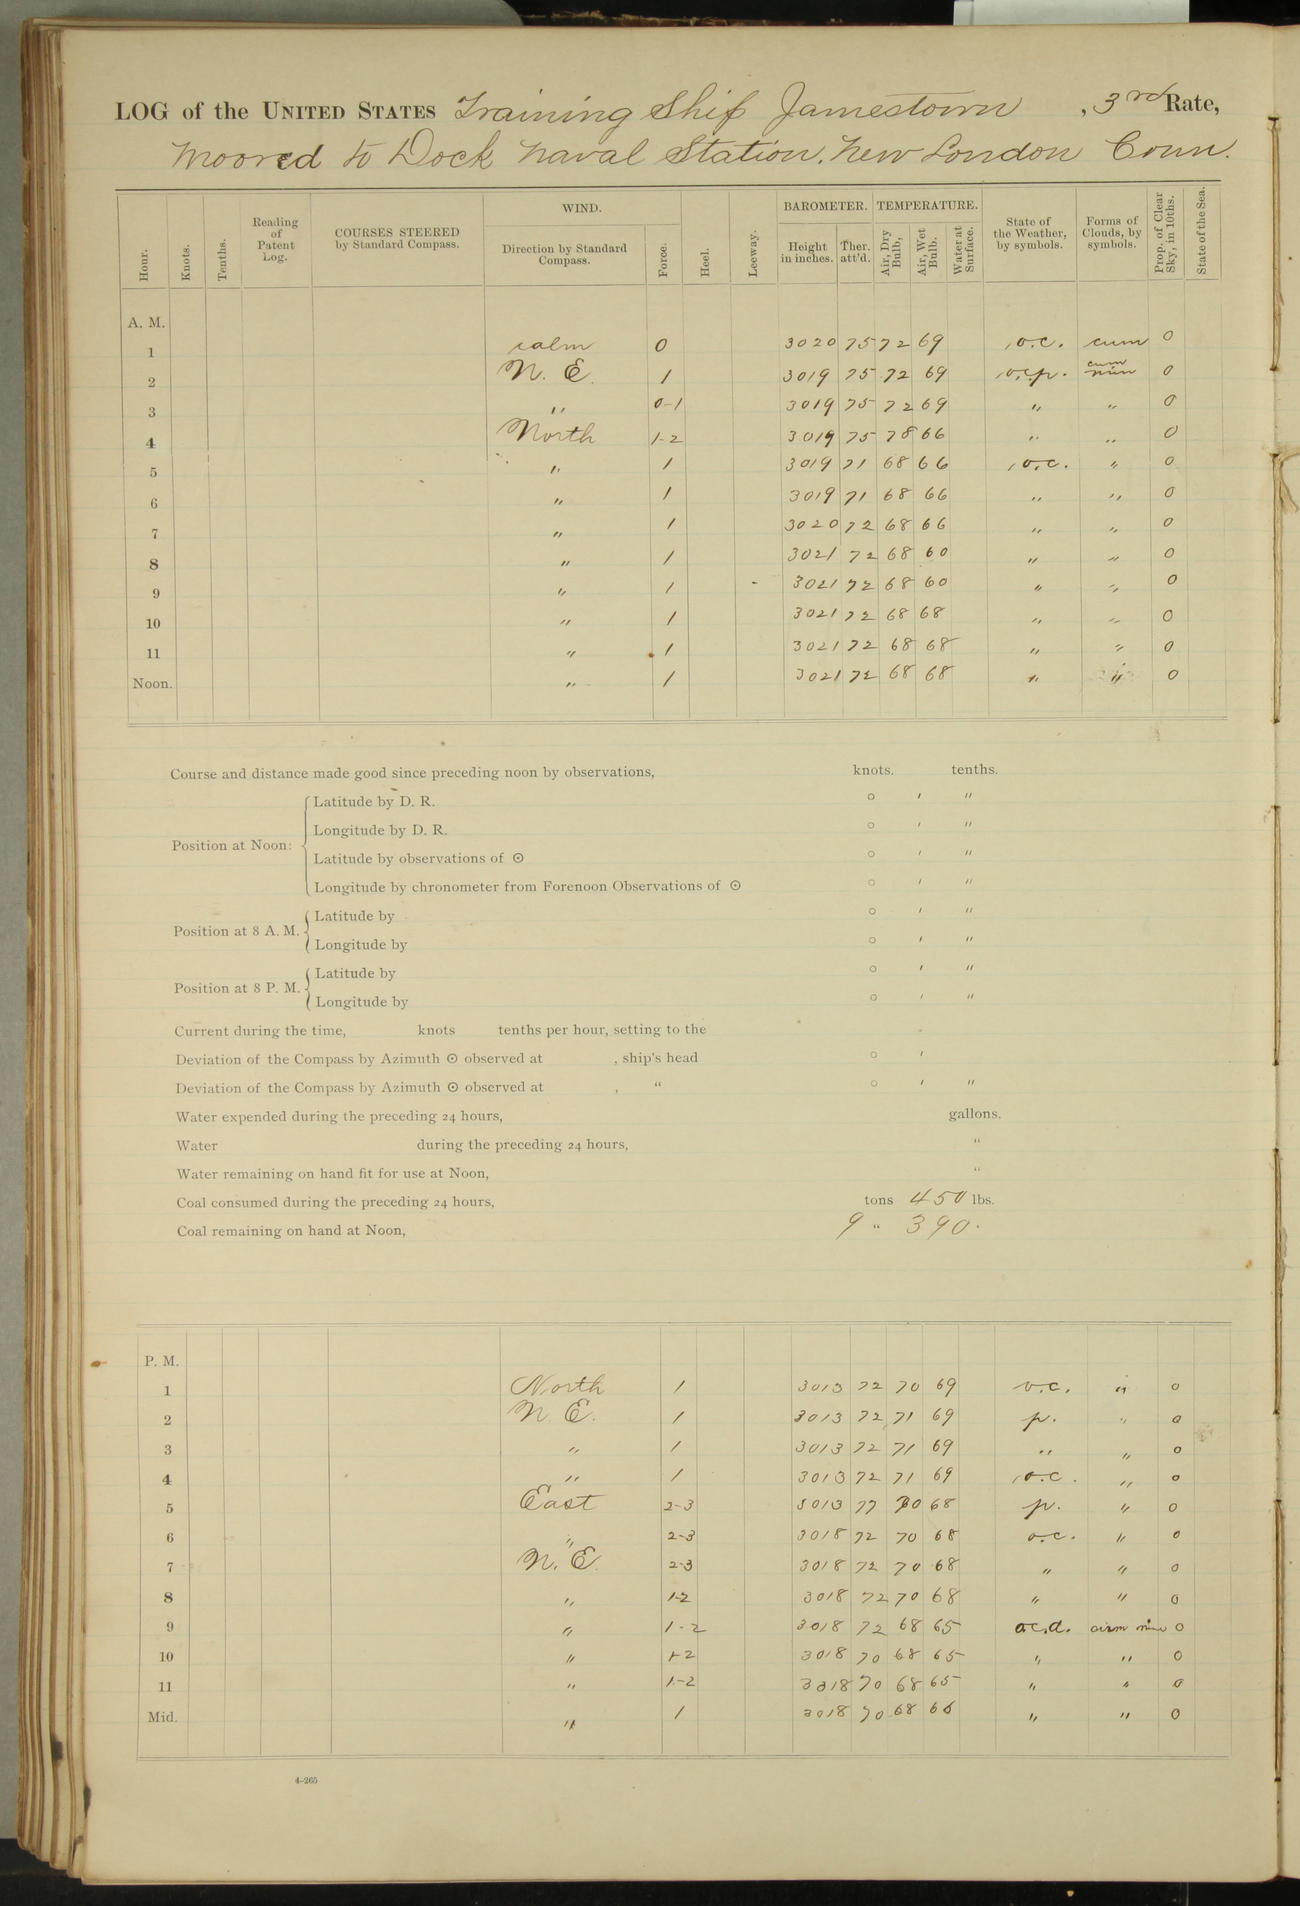 LOG of the UNITED STATES Training Ship Jamestown , 3rd Rate,
Moored to Dock Naval Station, New London Conn.
Hour. Knots. Tenths. Reading of Patent Log. COURSES STEERED by Standard Compass. WIND. Direction by Standard Compass. Force. Heel. Leeway. BAROMETER. Height in inches. Ther. att'd. TEMPERATURE. Air, Dry Bulb, Air, Wet Bulb. Water at Surface. State of the Weather, by symbols. Forms of Clouds, by symbols. Prop. of Clear Sky, in 10ths. State of the Sea.
A. M.
1 calm 0 3020 75 72 69 o.c. cum 0
2 N. E. 1 3019 75 72 69 o.c.p. cum nim 0
3 " 0-1 3019 75 72 69 " " 0
4 North 1-2 3019 75 78 66 " " 0
5 " 1 3019 71 68 66 o.c. " 0
6 " 1 3019 71 68 66 " " 0
7 " 1 3020 72 68 66 " " 0
8 " 1 3021 72 68 60 " " 0
9 " 1 3021 72 68 60 " " 0
10 " 1 3021 72 68 68 " " 0
11 " 1 3021 72 68 68 " " 0
Noon. " 1 3021 72 68 68 " " 0
Course and distance made good since preceding noon by observations, knots. tenths.
Position at Noon:
Latitude by D. R. ° ' "
Longitude by D. R. ° ' "
Latitude by observations of ⊙ ° ' "
Longitude by chronometer from Forenoon Observations of ⊙ ° ' "
Position at 8 A. M.
Latitude by ° ' "
Longitude by ° ' "
Position at 8 P. M.
Latitude by ° ' "
Longitude by ° ' "
Current during the time, knots tenths per hour, setting to the
Deviation of the Compass by Azimuth ⊙ observed at , ship's head ° '
Deviation of the Compass by Azimuth ⊙ observed at , " ° ' "
Water expended during the preceding 24 hours, gallons.
Water during the preceding 24 hours, "
Water remaining on hand fit for use at Noon, "
Coal consumed during the preceding 24 hours, tons 450 lbs.
Coal remaining on hand at Noon, 9 " 390.
P. M.
1 North 1 3013 72 70 69 o.c. " 0
2 N. E. 1 3013 72 71 69 p. " 0
3 " 1 3013 72 71 69 " " 0
4 " 1 3013 72 71 69 o.c. " 0
5 East 2-3 3013 77 70 68 p. " 0
6 " 2-3 3018 72 70 68 o.c. " 0
7 N. E. 2-3 3018 72 70 68 " " 0
8 " 1-2 3018 72 70 68 " " 0
9 " 1-2 3018 72 68 65 o.c.d. nim 0
10 " 1-2 3018 70 68 65 " " 0
11 " 1-2 3018 70 68 65 " " 0
Mid. " 1 3018 70 68 66 " " 0
4-265